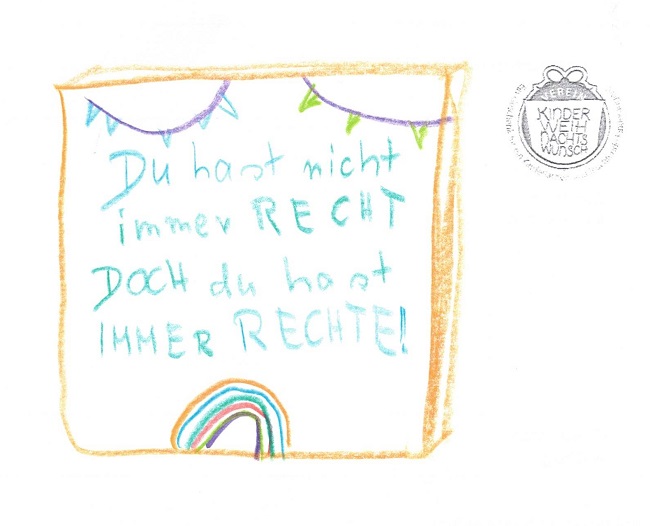 Du hast nicht
immer RECHT
DOCH du hast
IMMER RECHTE!
VEREIN
KINDER
WEIH
NACHTS
WUNSCH